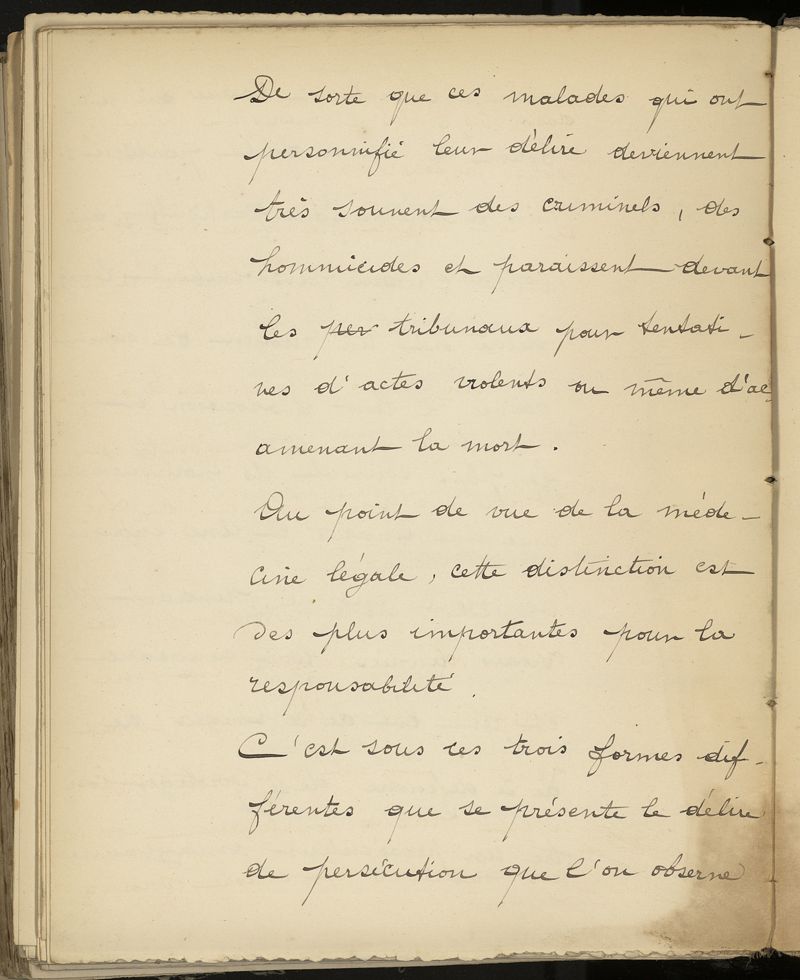 De sorte que ces malades qui ont
personnifié leur délire deviennent
très souvent des criminels, des
hommicides et paraissent devant
les per tribunaux pour tentati-
ves d'actes violents ou même d'ac
amenant la mort.
Au point de vue de la méde-
cine légale, cette distinction est
des plus importantes pour la
responsabilité.
C'est sous ces trois formes dif-
férentes que se présente le délire
de persécution que l'on observe